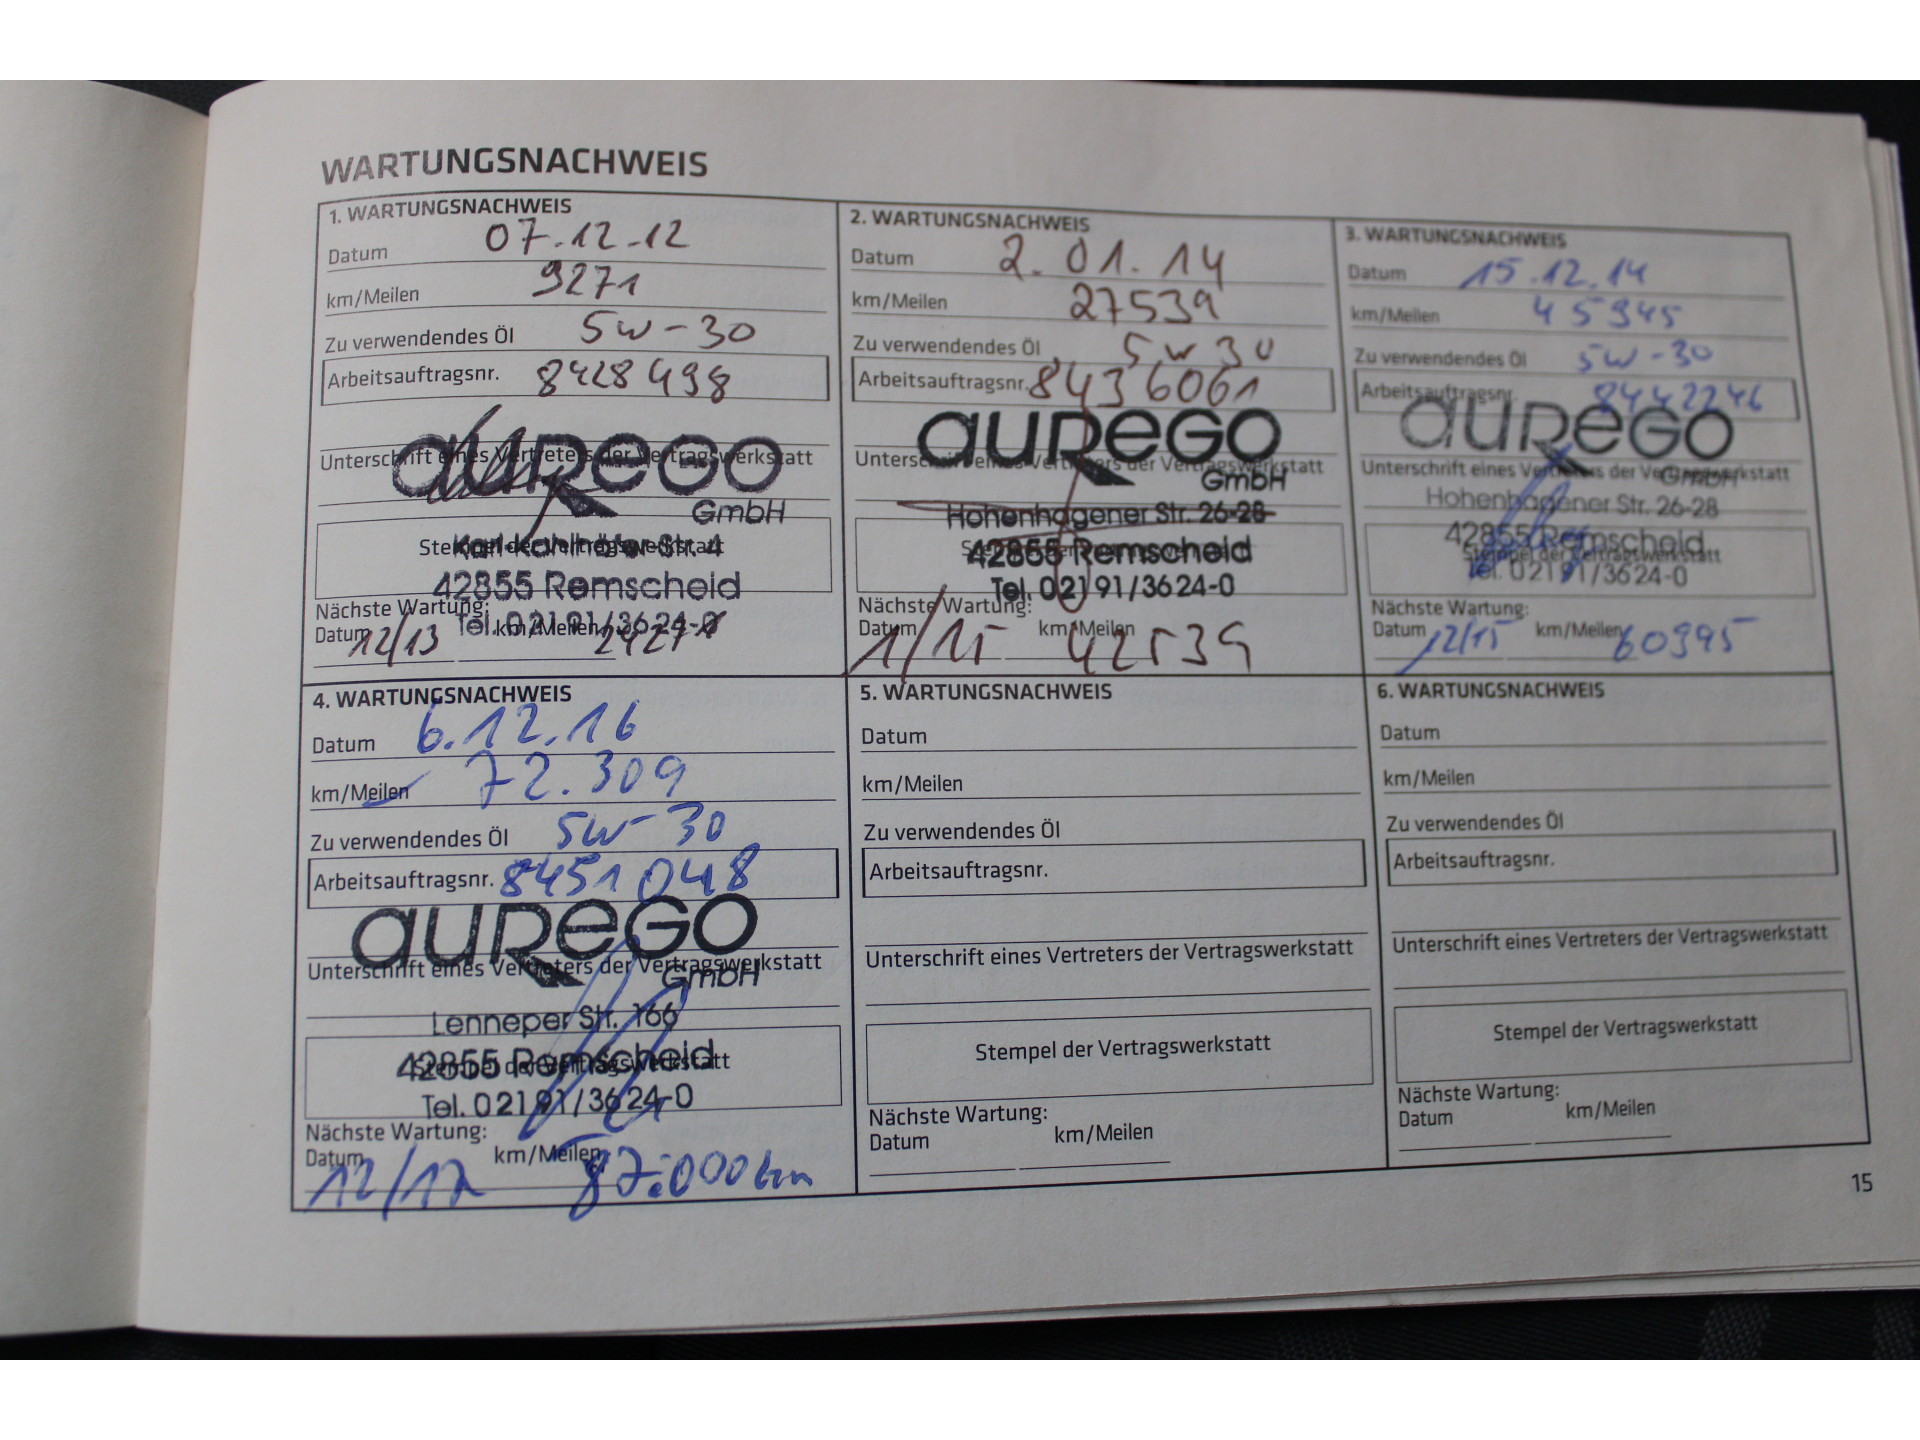 WARTUNGSNACHWEIS
1. WARTUNGSNACHWEIS
Datum 07.12.12
km/Meilen 9271
Zu verwendendes Öl 5W-30
Arbeitsauftragsnr. 8428498
aurego
Unterschrift eines Vertreters der Vertragswerkstatt
GmbH
Stempel der Vertragswerkstatt
42855 Remscheid
Nächste Wartung:
Tel. 02191/3624-0
Datum 12/13 km/Meilen 24271
2. WARTUNGSNACHWEIS
Datum 2.01.14
km/Meilen 27539
Zu verwendendes Öl 5W30
Arbeitsauftragsnr. 8436061
aurego
Unterschrift eines Vertreters der Vertragswerkstatt
GmbH
Hohenhagener Str. 26-28
Stempel der Vertragswerkstatt
42855 Remscheid
Tel. 02191/3624-0
Nächste Wartung:
Datum 1/15 km/Meilen 42539
3. WARTUNGSNACHWEIS
Datum 15.12.14
km/Meilen 45945
Zu verwendendes Öl 5W-30
Arbeitsauftragsnr. 8442246
aurego
Unterschrift eines Vertreters der Vertragswerkstatt
GmbH
Hohenhagener Str. 26-28
42855 Remscheid
Stempel der Vertragswerkstatt
Tel. 02191/3624-0
Nächste Wartung:
Datum 12/15 km/Meilen 60995
4. WARTUNGSNACHWEIS
Datum 6.12.16
km/Meilen 72.309
Zu verwendendes Öl 5W-30
Arbeitsauftragsnr. 8451048
aurego
Unterschrift eines Vertreters der Vertragswerkstatt
GmbH
Lenneper Str. 166
42855 Remscheid
Stempel der Vertragswerkstatt
Tel. 02191/3624-0
Nächste Wartung:
Datum 12/17 km/Meilen 87.000km
5. WARTUNGSNACHWEIS
Datum
km/Meilen
Zu verwendendes Öl
Arbeitsauftragsnr.
Unterschrift eines Vertreters der Vertragswerkstatt
Stempel der Vertragswerkstatt
Nächste Wartung:
Datum km/Meilen
6. WARTUNGSNACHWEIS
Datum
km/Meilen
Zu verwendendes Öl
Arbeitsauftragsnr.
Unterschrift eines Vertreters der Vertragswerkstatt
Stempel der Vertragswerkstatt
Nächste Wartung:
Datum km/Meilen
15